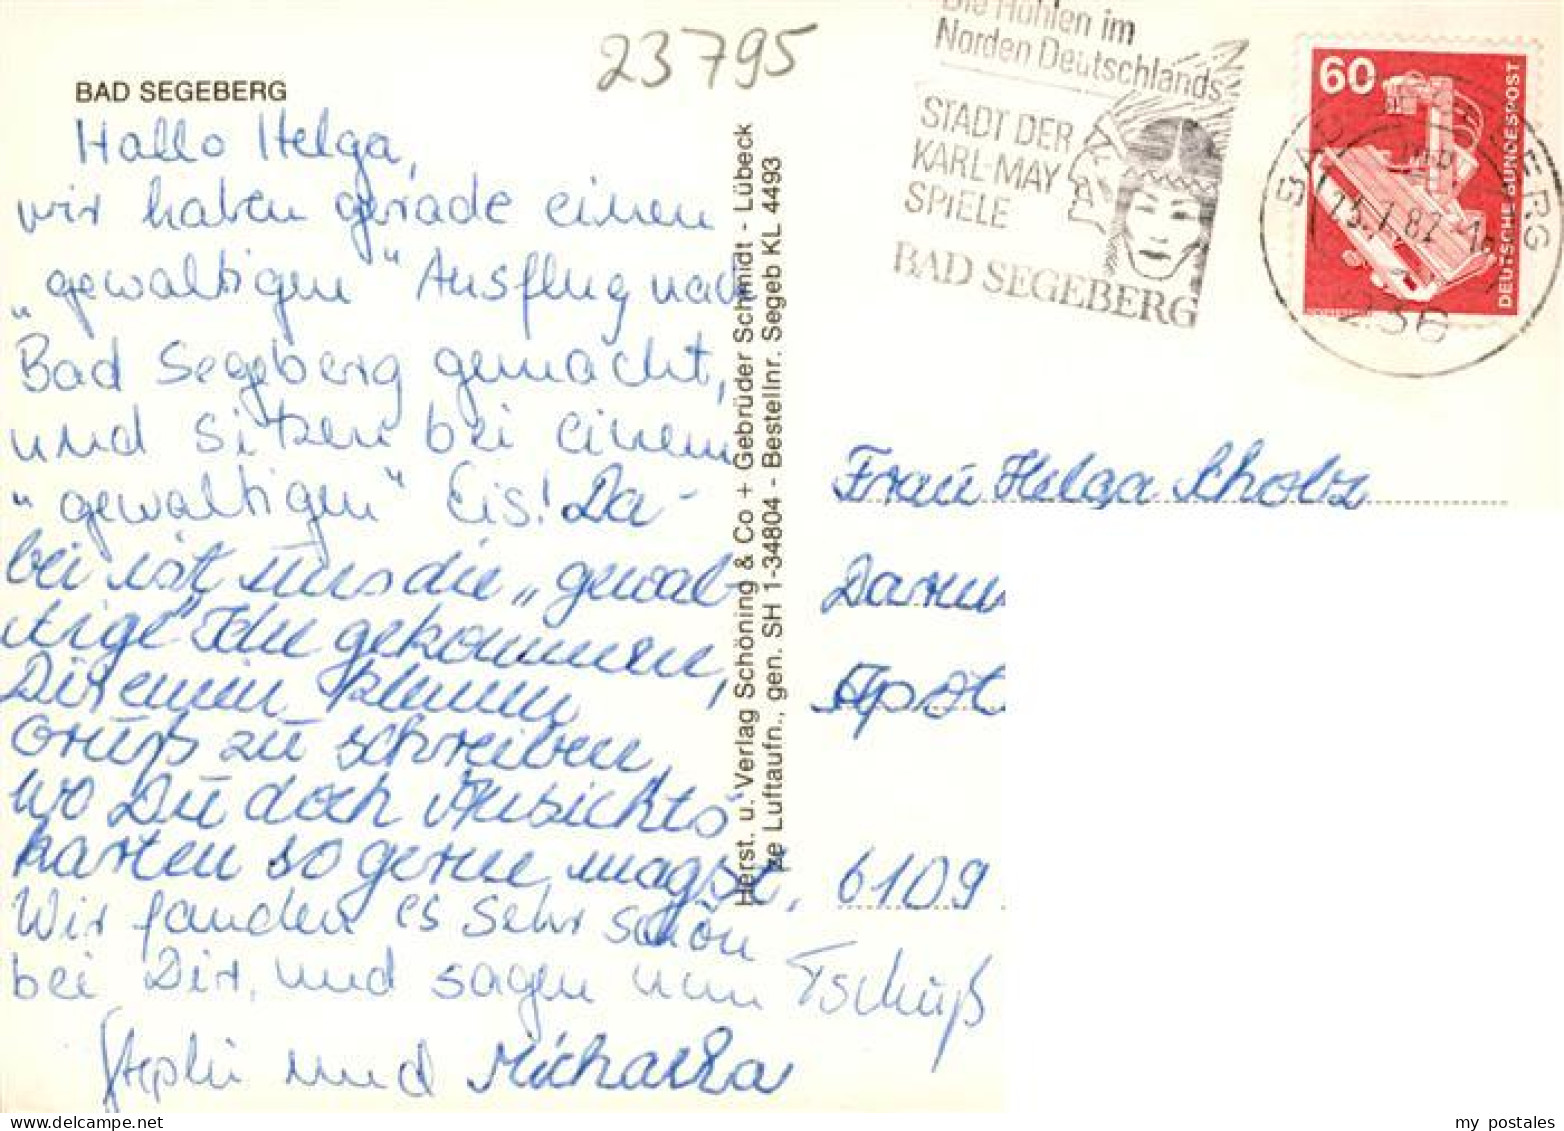 23795
BAD SEGEBERG
Hallo Helga,
wir haben gerade einen
„gewaltigen" Ausflug nach
Bad Segeberg gemacht,
und sitzen bei einem
„gewaltigen" Eis! Da-
bei ist uns die „gewal-
tige" Idee gekommen,
Dir einen kleinen
Gruß zu schreiben,
wo Du doch Ansichts-
karten so gerne magst.
Wir fanden es sehr schön
bei Dir, und sagen nun Tschüß
Stephi und Michaela
Herst. u. Verlag Schöning & Co + Gebrüder Schmidt - Lübeck
ze Luftaufn., gen. SH 1-34804 - Bestellnr. Segeb KL 4493
Die Höhlen im
Norden Deutschlands
STADT DER
KARL-MAY
SPIELE
BAD SEGEBERG
60
DEUTSCHE BUNDESPOST
BAD SEGEBERG
236
Frau Helga Scholz
Darm
Apot
6109
my postales